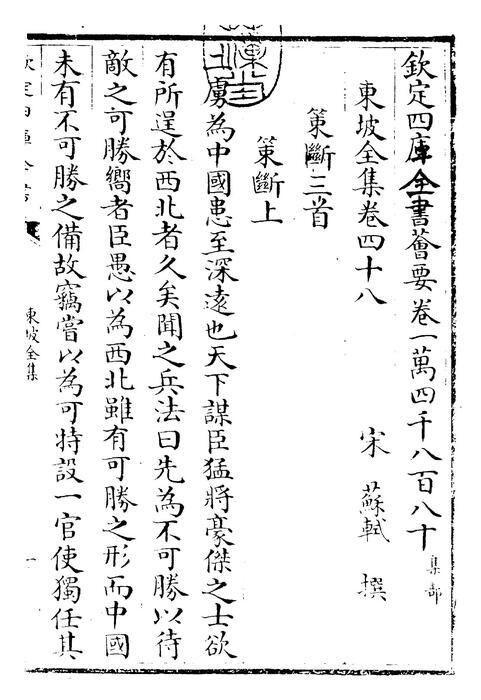 欽定四庫全書薈要卷一萬四千八百八十 集部
東坡全集卷四十八
宋 蘇軾 撰
策斷三首
策斷上
二虜為中國患至深遠也天下謀臣猛將豪傑之士欲
有所逞於西北者久矣聞之兵法曰先為不可勝以待
敵之可勝嚮者臣愚以為西北雖有可勝之形而中國
未有不可勝之備故竊嘗以為可特設一官使獨任其
東坡全集
一